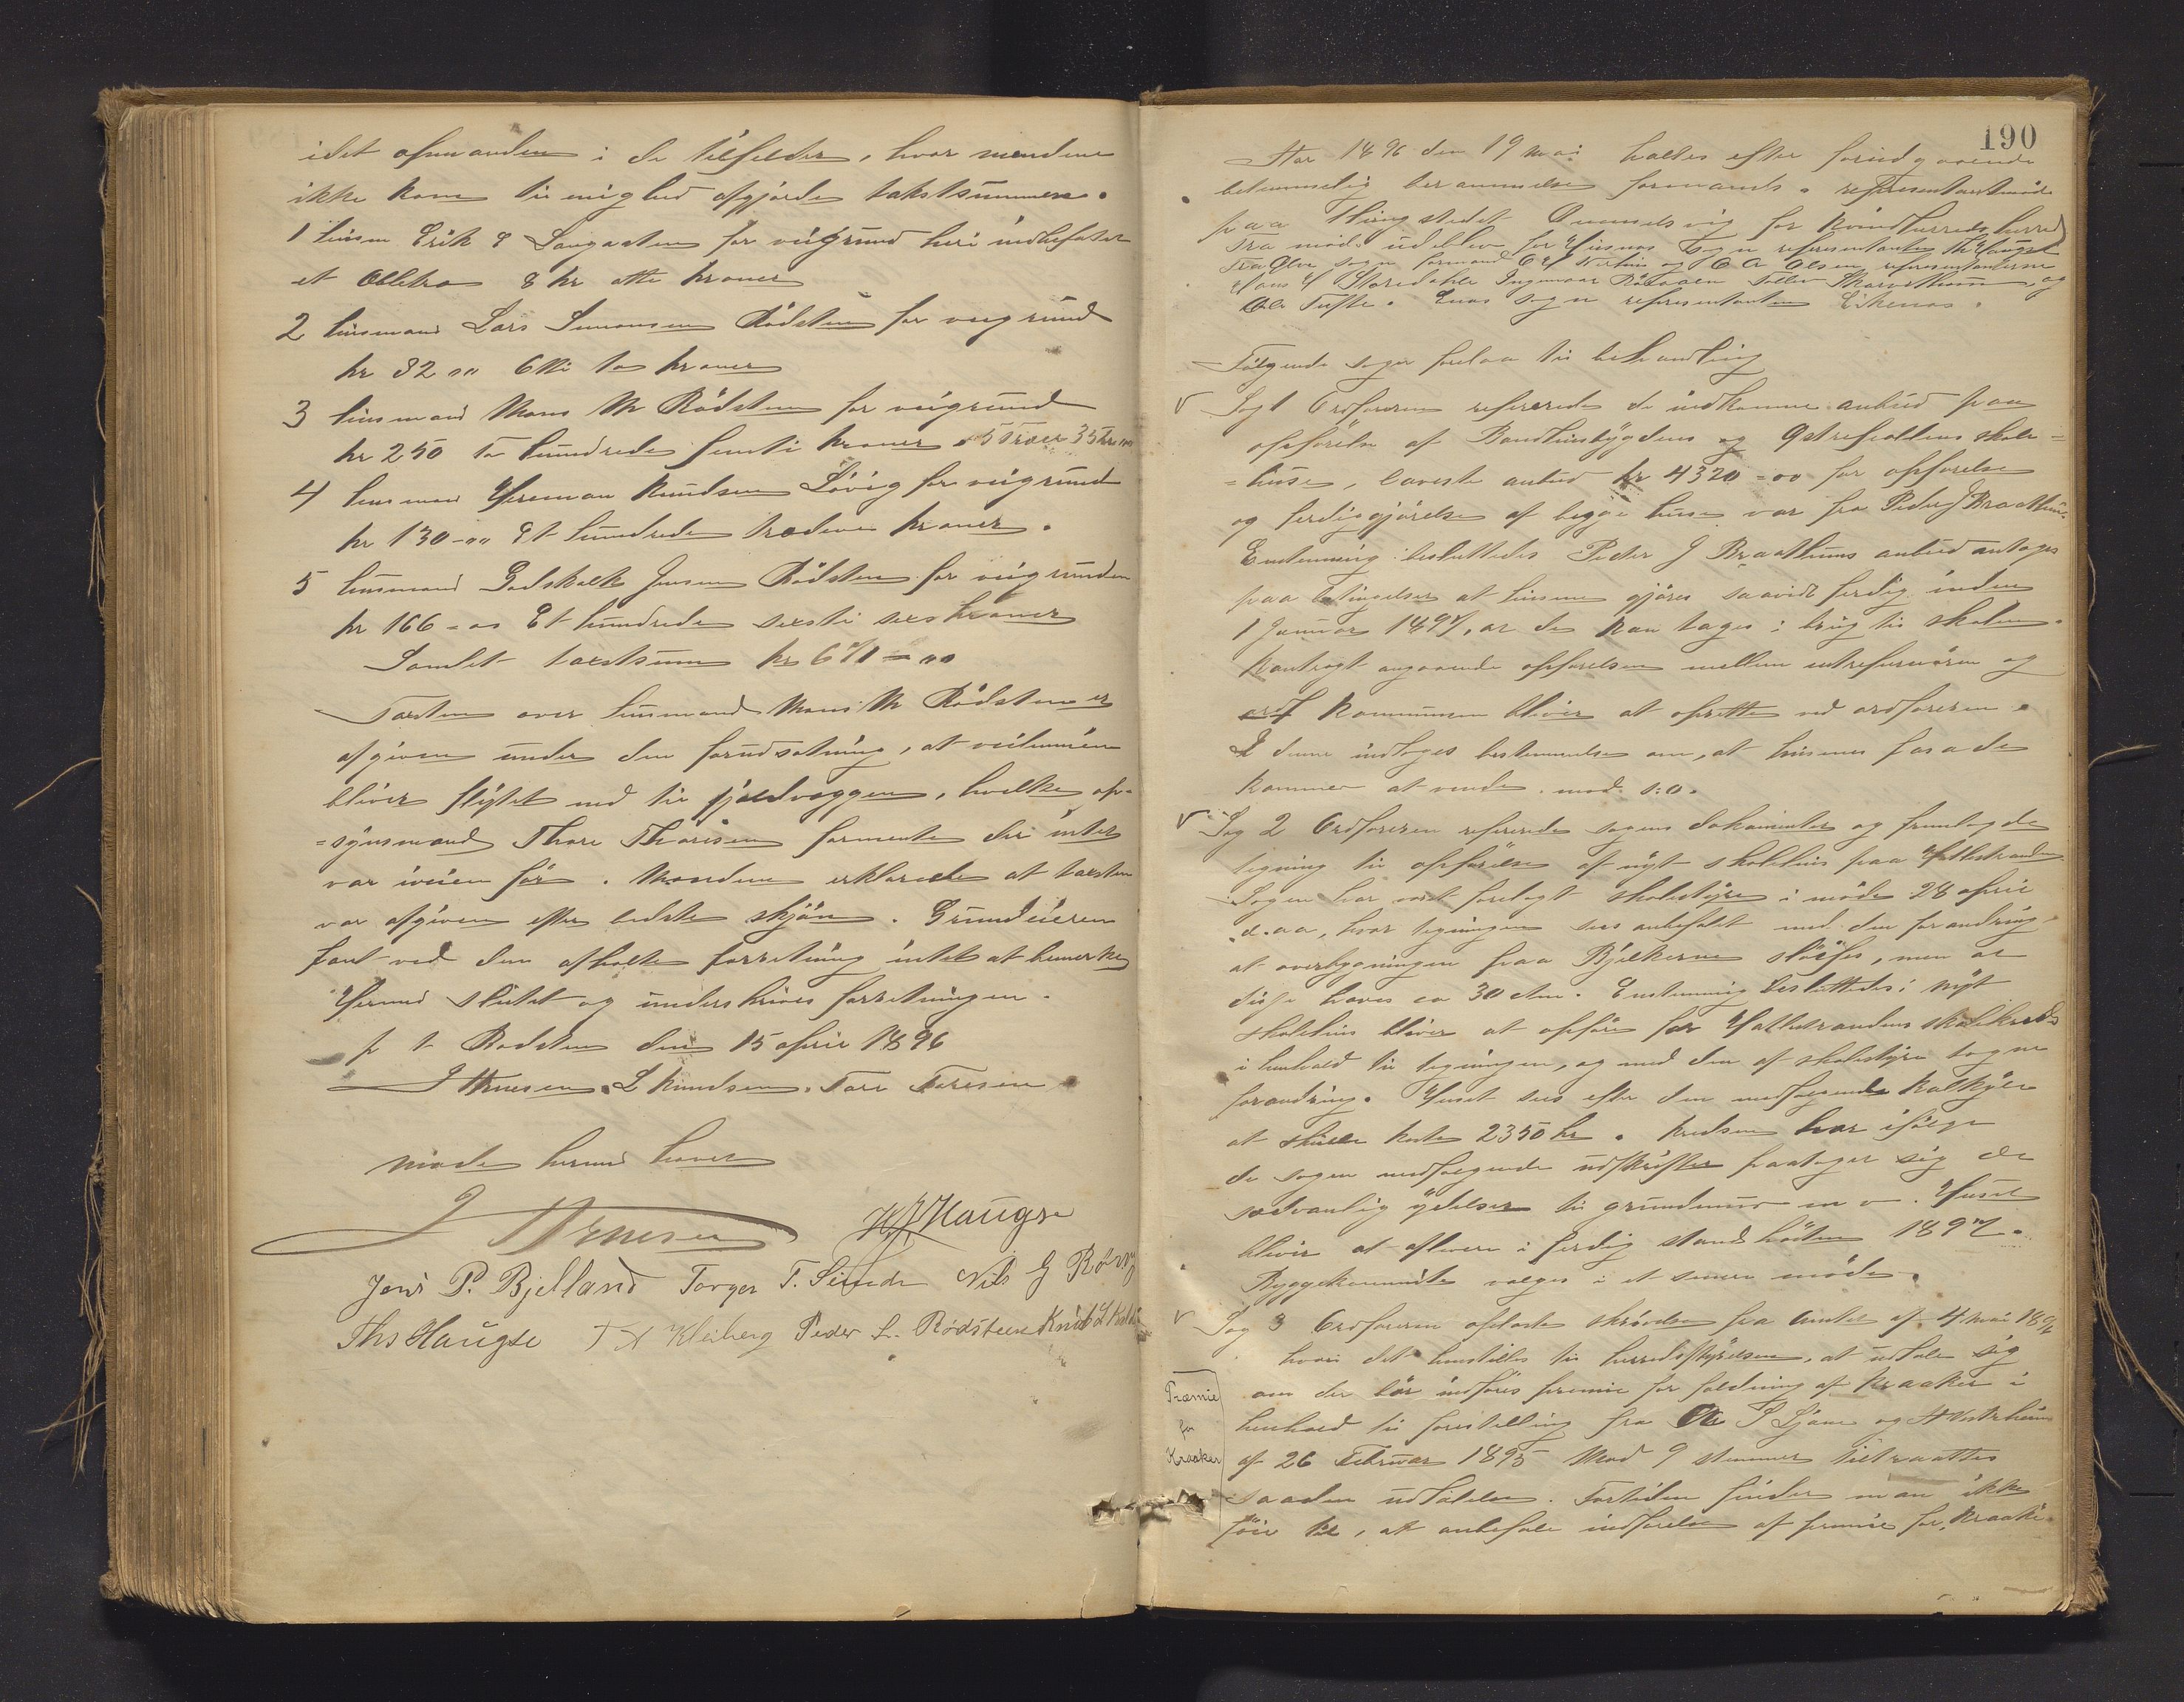 idet opmanden i de tilfelder, hvor mendene
ikke kom til enighed afgjorde takstsummen.
1 husm Erik E Langaaten for veigrund heri indbefatet
et Æbletræ 8 kr otte kroner
2 husmand Lars Simonsen Rødsten for veigrund
kr 32 " to kroner
3 husmand Mons M Rødsten for veigrund
kr 250 to hundrede femti kroner 5 Træer 35 kr
4 husmand Herman Knudsen Løvig for veigrund
kr 130 - " Et hundrede tredeve kroner.
5 husmand Godskalk Jensen Rødsten for veigrunden
kr 166 - oo Et hundrede seksti seks kroner
Samlet taxtsum kr 671 = "
Taxten over husmand Mons M Rødsten er
afgiven under den forudsætning, at veilinnien
bliver flÿtet ned til fjeldvæggen, hvilket op-
=sÿnsmand Thore Thoresen formente der intet
var iveien før. Mændene erklærede at taxten
var afgiven efter bedste skjøn. Grundeieren
fant ved den afholte forretning intet at bemerke
Hermed slutet og underskrives forretningen.
p t Rødsten den 15 april 1896
J Arnesen. L Knudsen. Tore Toresen
Møde hermed hævet
J Arnesen H J Haugse
Jens P. Bjelland Torger T. Sunde Nils G Rørvig
Ths Haugse T N Kleiberg Peder L. Rødsteen Knut L
190
Aar 1896 den 19 mai holtes efter foriudgaaende
betimmelig berammelse formands & represantantmøde
paa Thingstedet Gunnelsvig for Kvindherreds herred
Fra møde udeblev for Husnes Sogn representanten Th Haugse
Fra Ølve sogn formand og O A Olsen representanterne
Hans H Storedahle Ingemar Rødaaen Tollev og
Ole Tufte. Enes sogn representanten Eikenes.
Følgende sager forelaa til behandling
V Sag 1 Ordføreren refererede de indkomne anbud paa
opførelse af bÿgdens og skole=
=huse, laveste anbud kr 4320 = oo for opførelse
og ferdiggjørelse af begge huse var fra Peder J Braathun.
Enstemmig besluttedes Peder J Braathuns anbud antages
paa betingelse at husene gjøres saavidt ferdig inden
1 Januar 1897, at de kan tages i brug til skolen.
Kontragt angaaende opførelsen mellem entreprenøren og
kommunen bliver at oprette ved ordføreren.
I denne indtages bestemmelse om, at husenes fasade
kommer at vende mod s.o.
V Sag 2 Ordføreren refererede sagens dokumenter og fremlagde
tegning til opførelse af nÿt skolehus paa Hatlestranden
Sagen har vært forelagt skolestÿre i møde 28 april
d.aa, hvor tegningen sees anbefalt med den forandring
at overbÿgningen paa Bjelkerne sløifes, men at
disse hæves ca 30 ctm. Enstemmig besluttedes: Nÿt
skolehus bliver at opføre for Hatlestrandens skolekreds
i henhold til tegningen, og med den af skolestÿre tagne
forandring. Huset sees efter den medfølgende kalkÿle
at skulle koste 2350 kr. Kredsen har ifølge
de sagen medfølgende udskrifter paataget sig de
sædvanlig ÿdelser til grundmur m v. Huset
bliver at aflevere i ferdig stand høsten 1897.
Byggekommite vælges i et senere møde.
V Sag 3 Ordføreren oplæste skrivelse fra Amtet af 4 mai 1896
hvori det henstilles til herredsstÿrelsen, at udtale sig
om der bør indføres premie for fældning af kraaker i
henhold til forestilling fra Ole S Sjøen og
af 26 Februar 1895 Mod 9 stemmer tiltraattes
saaden udtalelse. Fortiden finder man ikke
føie til, at anbefale indførelse af premie for kraaker
Præmie
for
Kraaker